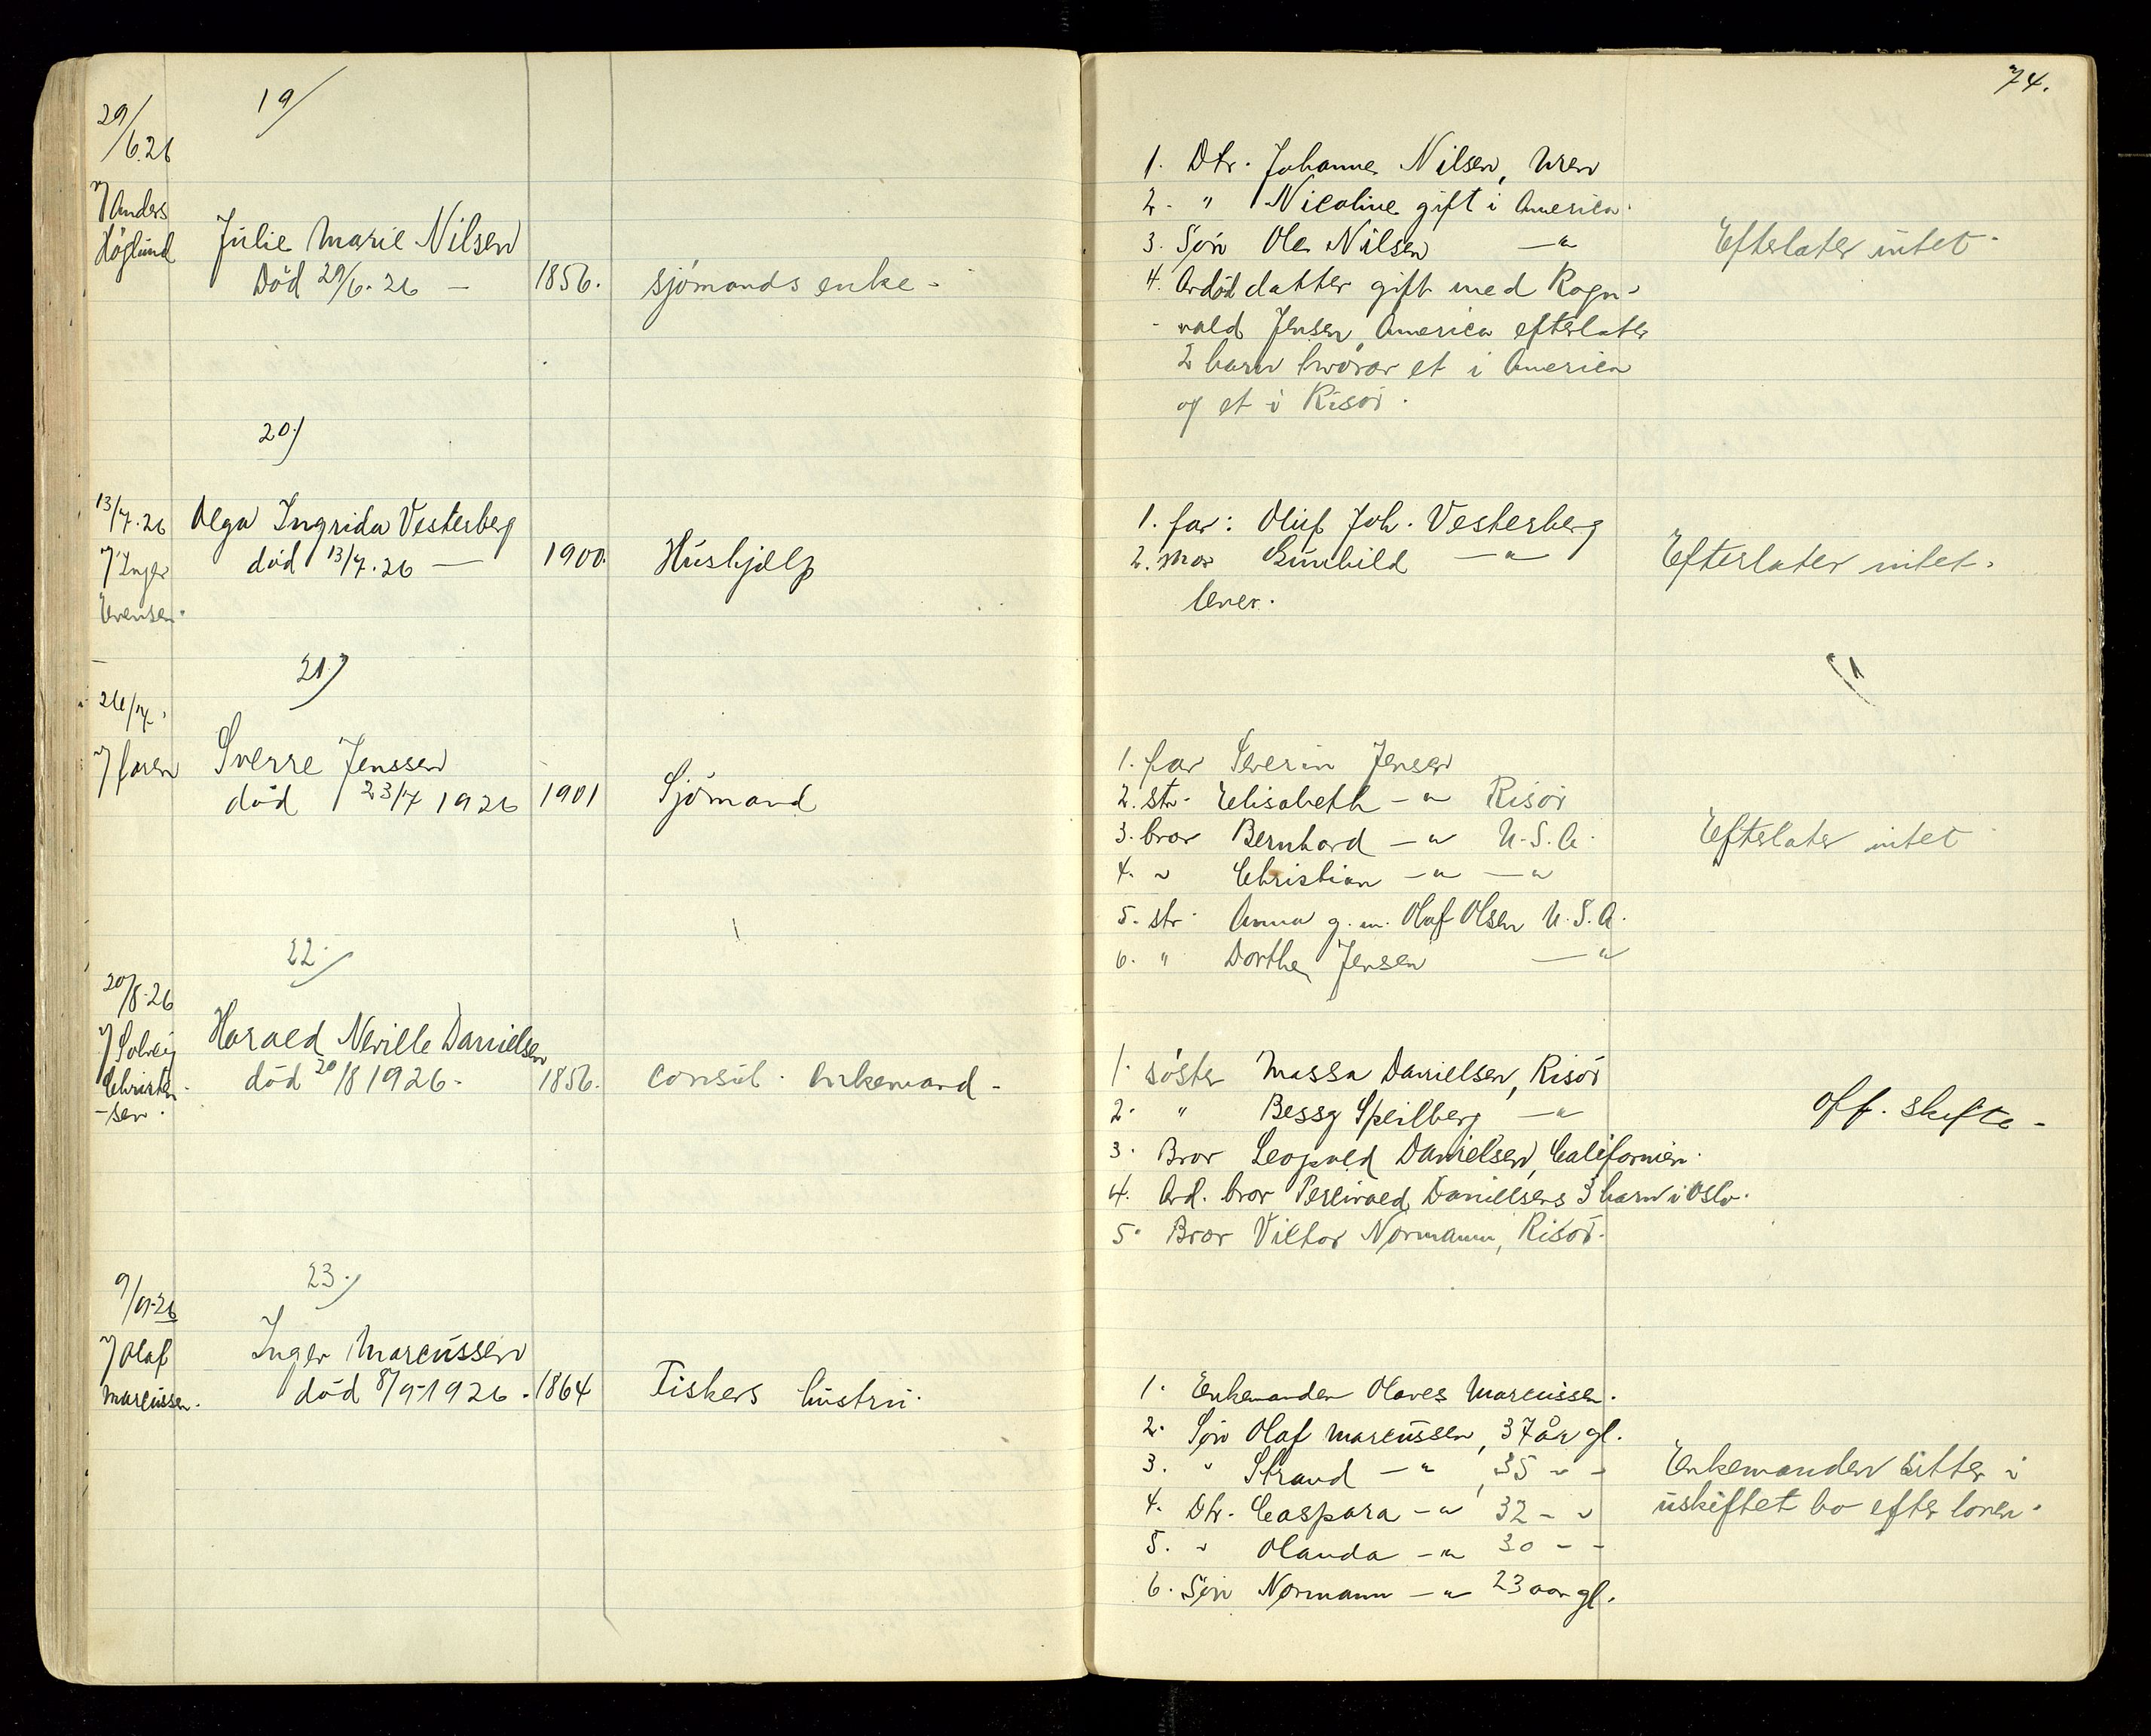 74.
19/
29/6.26
v/ Anders
Höglund
Julie Marie Nilsen
Död 29/6. 26 —
1856.
sjömands enke -
1. Dtr. Johanne Nilsen, Uren
2. " Nicoline gift i America.
3. Søn Ole Nilsen —"—
4. Avdöd datter gift med Ragn-
vald Jensen, America efterlater
2 barn hvorav et i America
og et i Risör.
Efterlater intet.
20/
13/7.26
v/ Inger
Evensen.
Olga Ingrida Vesterberg
død 13/7.26 —
1900.
Hushjælp
1. far: Oluf Joh. Vesterberg
2. mor Gunhild —"—
lever.
Efterlater intet.
21/
26/7.
v/ faren
Sverre Jenssen
död 23/7 1926
1901
Sjömand
1. far Severin Jensen
2. str. Elisabeth —"— Risör
3. bror Bernhard —"— U.S.A.
4. " Christian —"— —"—
5. str. Anna g.m. Olaf Olsen U.S.A.
6. " Dorthea Jensen —"—
Efterlater intet
22/
20/8.26
v/ Solveig
Christen-
-sen.
Harald Neville Danielsen
död 20/8 1926.
1856.
consul. Enkemand -
1. söster Massa Danielsen, Risör
2. " Bessy Speilberg —"—
3. Bror Leopold Danielsen, Californien.
4. Avd. bror Percivald Danielsens 3 barn i Oslo.
5. Bror Viktor Normann, Risör.
Off. skifte -
23./
9/9-26
v/ Olaf
Marcussen.
Inger Marcussen
død 8/9-1926.
1864
Fiskers hustru.
1. Enkemanden Olaves Marcussen.
2. Søn Olaf Marcussen, 37 år gl.
3. " Strand —"—, 35 " -
4. Dtr. Caspara —"— 32 - "
5. " Olanda —"— 30 - -
6. Søn Normann —"— 23 aar gl.
Enkemanden sitter i
uskiftet bo efter loven.